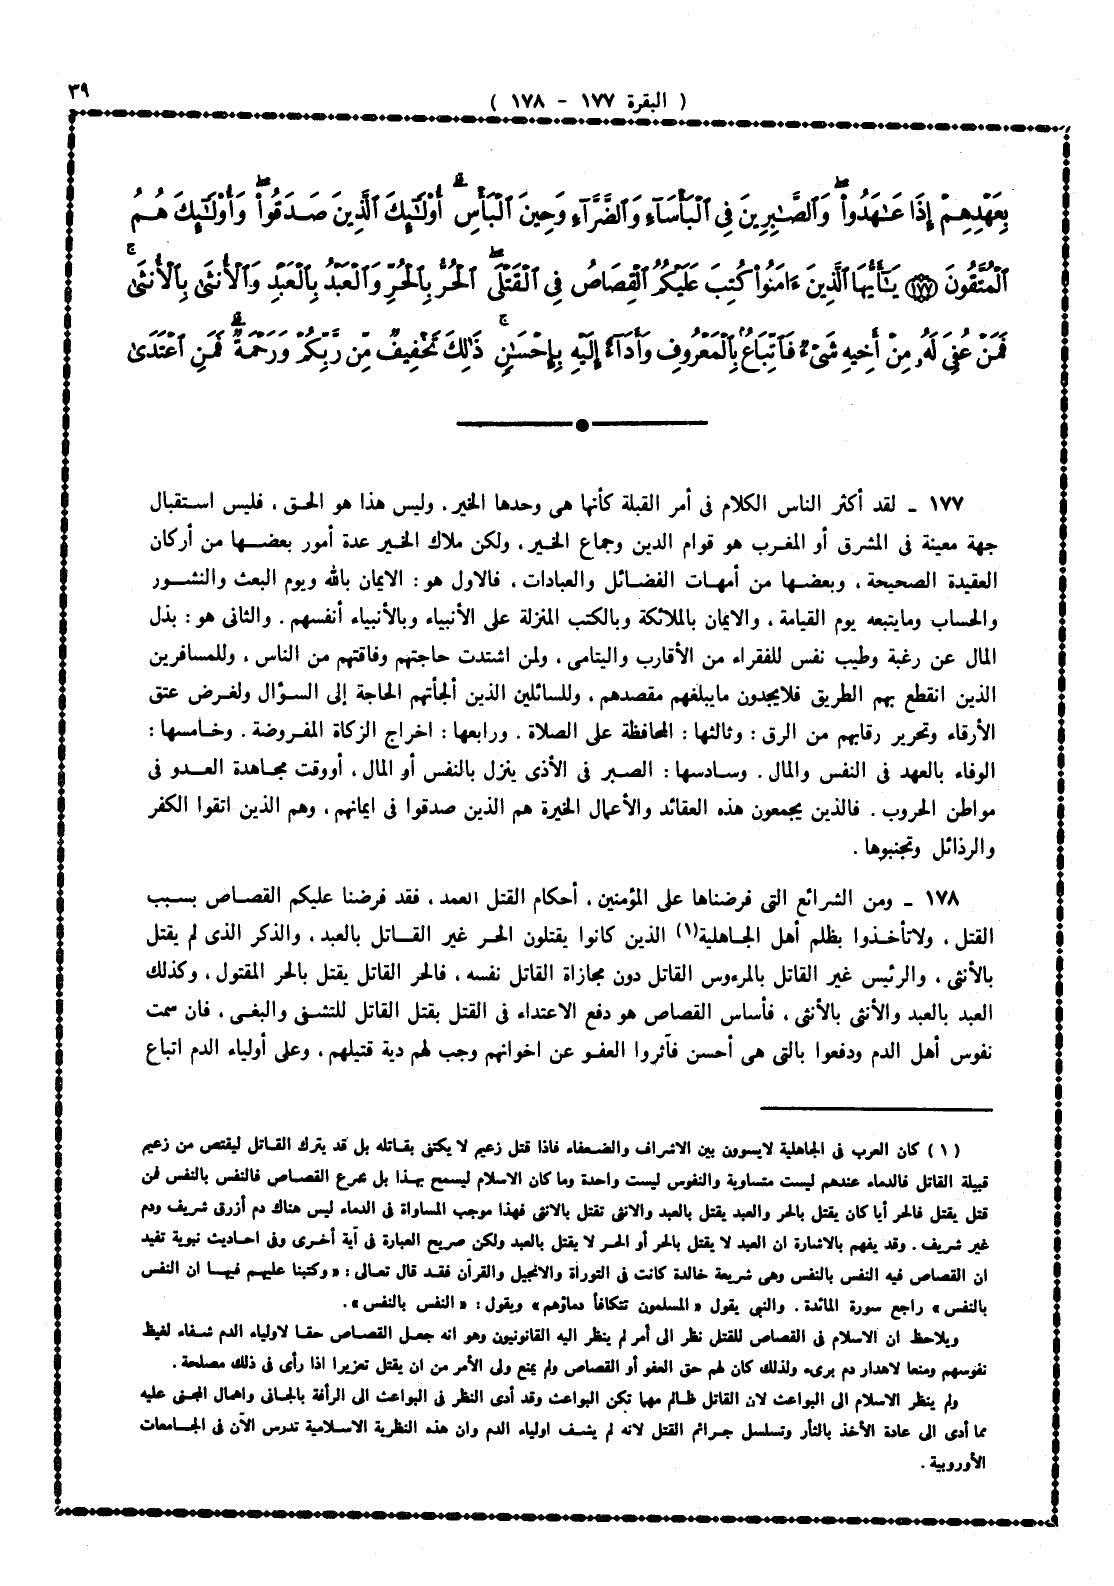 ٣٩
( البقرة ١٧٧ - ١٧٨ )
بِعَهْدِهِمْ إِذَا عَـٰهَدُوا۟ ۖ وَالصَّـٰبِرِينَ فِى الْبَأْسَآءِ وَالضَّرَّآءِ وَحِينَ الْبَأْسِ ۗ أُو۟لَـٰٓئِكَ الَّذِينَ صَدَقُوا۟ ۖ وَأُو۟لَـٰٓئِكَ هُمُ
الْمُتَّقُونَ ﴿١٧٧﴾ يَـٰٓأَيُّهَا الَّذِينَ ءَامَنُوا۟ كُتِبَ عَلَيْكُمُ الْقِصَاصُ فِى الْقَتْلَى ۖ الْحُرُّ بِالْحُرِّ وَالْعَبْدُ بِالْعَبْدِ وَالْأُنثَىٰ بِالْأُنثَىٰ ۚ
فَمَنْ عُفِىَ لَهُۥ مِنْ أَخِيهِ شَىْءٌ فَاتِّبَاعٌۢ بِالْمَعْرُوفِ وَأَدَآءٌ إِلَيْهِ بِإِحْسَـٰنٍ ۗ ذَٰلِكَ تَخْفِيفٌ مِّن رَّبِّكُمْ وَرَحْمَةٌ ۗ فَمَنِ اعْتَدَىٰ
١٧٧ ـ لقد أكثر الناس الكلام فى أمر القبلة كأنها هى وحدها الخير ، وليس هذا هو الحق ، فليس استقبال
جهة معينة فى المشرق أو المغرب هو قوام الدين وجماع الخير ، ولكن ملاك الخير عدة أمور بعضها من أركان
العقيدة الصحيحة ، وبعضها من أمهات الفضائل والعبادات ، فالاول هو : الايمان بالله ويوم البعث والنشور
والحساب ومايتبعه يوم القيامة ، والايمان بالملائكة وبالكتب المنزلة على الأنبياء وبالأنبياء أنفسهم . والثانى هو : بذل
المال عن رغبة وطيب نفس للفقراء من الأقارب واليتامى ، ولمن اشتدت حاجتهم وفاقتهم من الناس ، وللمسافرين
الذين انقطع بهم الطريق فلايجدون مايبلغهم مقصدهم ، وللسائلين الذين ألجأتهم الحاجة إلى السؤال ولغرض عتق
الأرقاء وتحرير رقابهم من الرق : وثالثها : المحافظة على الصلاة . ورابعها : اخراج الزكاة المفروضة . وخامسها :
الوفاء بالعهد فى النفس والمال . وسادسها : الصبر فى الأذى ينزل بالنفس أو المال ، أووقت مجاهدة العدو فى
مواطن الحروب . فالذين يجمعون هذه العقائد والأعمال الخيرة هم الذين صدقوا فى ايمانهم ، وهم الذين اتقوا الكفر
والرذائل وتجنبوها .
١٧٨ ـ ومن الشرائع التى فرضناها على المؤمنين ، أحكام القتل العمد ، فقد فرضنا عليكم القصاص بسبب
القتل ، ولاتأخذوا بظلم أهل الجاهلية(١) الذين كانوا يقتلون الحر غير القاتل بالعبد ، والذكر الذى لم يقتل
بالأنثى ، والرئيس غير القاتل بالمرءوس القاتل دون مجازاة القاتل نفسه ، فالحر القاتل يقتل بالحر المقتول ، وكذلك
العبد بالعبد والأنثى بالأنثى ، فأساس القصاص هو دفع الاعتداء فى القتل بقتل القاتل للتشفى والبغى ، فان سمت
نفوس أهل الدم ودفعوا بالتى هى أحسن فآثروا العفو عن اخوانهم وجب لهم دية قتيلهم ، وعلى أولياء الدم اتباع
( ١ ) كان العرب فى الجاهلية لايسوون بين الاشراف والضعفاء فاذا قتل زعيم لا يكتفى بقاتله بل قد يترك القاتل ليقتص من زعيم
قبيلة القاتل فالدماء عندهم ليست متساوية والنفوس ليست واحدة وما كان الاسلام ليسمح بهذا بل شرع القصاص فالنفس بالنفس فمن
قتل يقتل فالحر أيا كان يقتل بالحر والعبد يقتل بالعبد والانثى تقتل بالانثى فهذا موجب المساواة فى الدماء ليس هناك دم أزرق شريف ودم
غير شريف . وقد يفهم بالاشارة ان العبد لا يقتل بالحر أو الحر لا يقتل بالعبد ولكن صريح العبارة فى آية أخرى وفى احاديث نبوية تفيد
ان القصاص فيه النفس بالنفس وهى شريعة خالدة كانت فى التوراة والانجيل والقرآن فقد قال تعالى : « وكتبنا عليهم فيها ان النفس
بالنفس » راجع سورة المائدة . والنبى يقول « المسلمون تتكافأ دماؤهم » ويقول : « النفس بالنفس » .
ويلاحظ ان الاسلام فى القصاص للقتل نظر الى أمر لم ينظر اليه القانونيون وهو انه جعل القصاص حقا لاولياء الدم شفاء لغيظ
نفوسهم ومنعا لاهدار دم برىء ولذلك كان لهم حق العفو أو القصاص ولم يمنع ولى الأمر من ان يقتل تعزيرا اذا رأى فى ذلك مصلحة .
ولم ينظر الاسلام الى البواعث لان القاتل ظالم مهما تكن البواعث وقد أدى النظر فى البواعث الى الرأفة بالجانى واهمال المجنى عليه
مما أدى الى عادة الأخذ بالثأر وتسلسل جرائم القتل لانه لم يشف اولياء الدم وان هذه النظرية الاسلامية تدرس الآن فى الجامعات
الأوروبية .